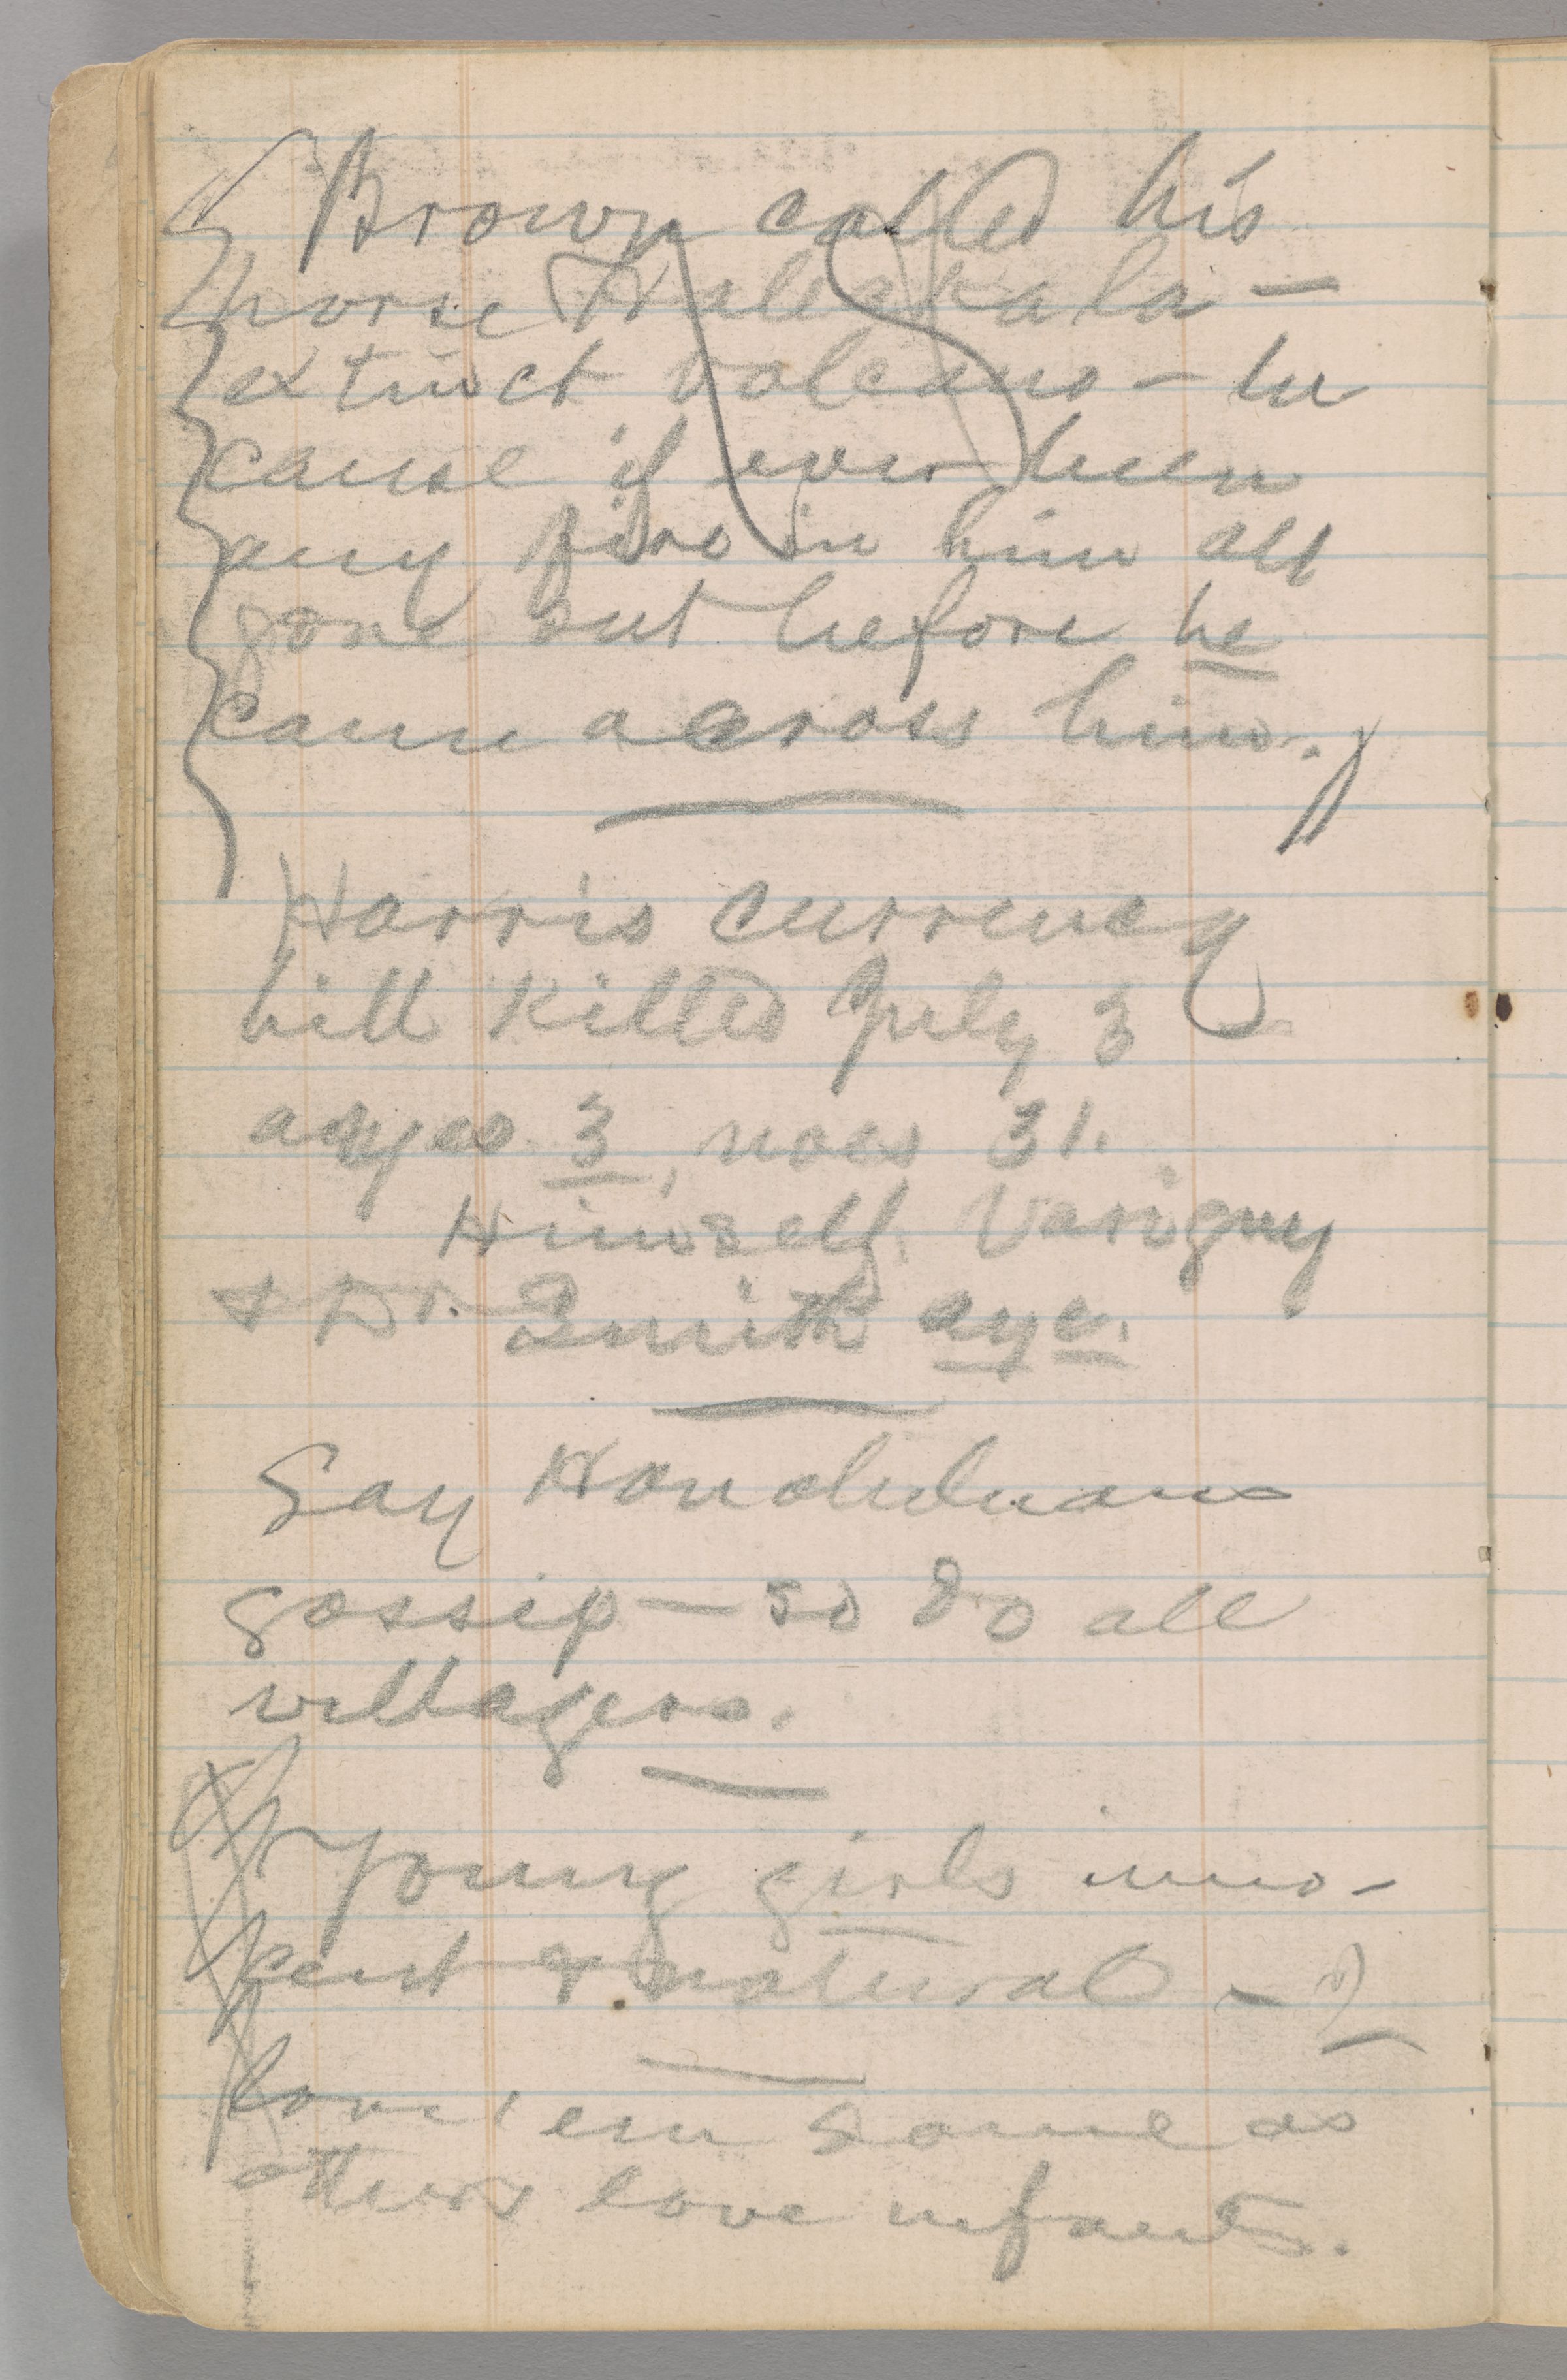 Brown called his
horse Haleakala —
extinct volcano — be
cause if ever been
any fire in him all
gone out before he
came across him.
Harris currency
bill killed July 3
ayes 3, noes 31.
Himself, Varigny
& Dr. Smith aye.
Say Honoluluans
gossip — so do all
villagers.
Young girls inno-
cent & natural — I
love 'em same as
others love infants.